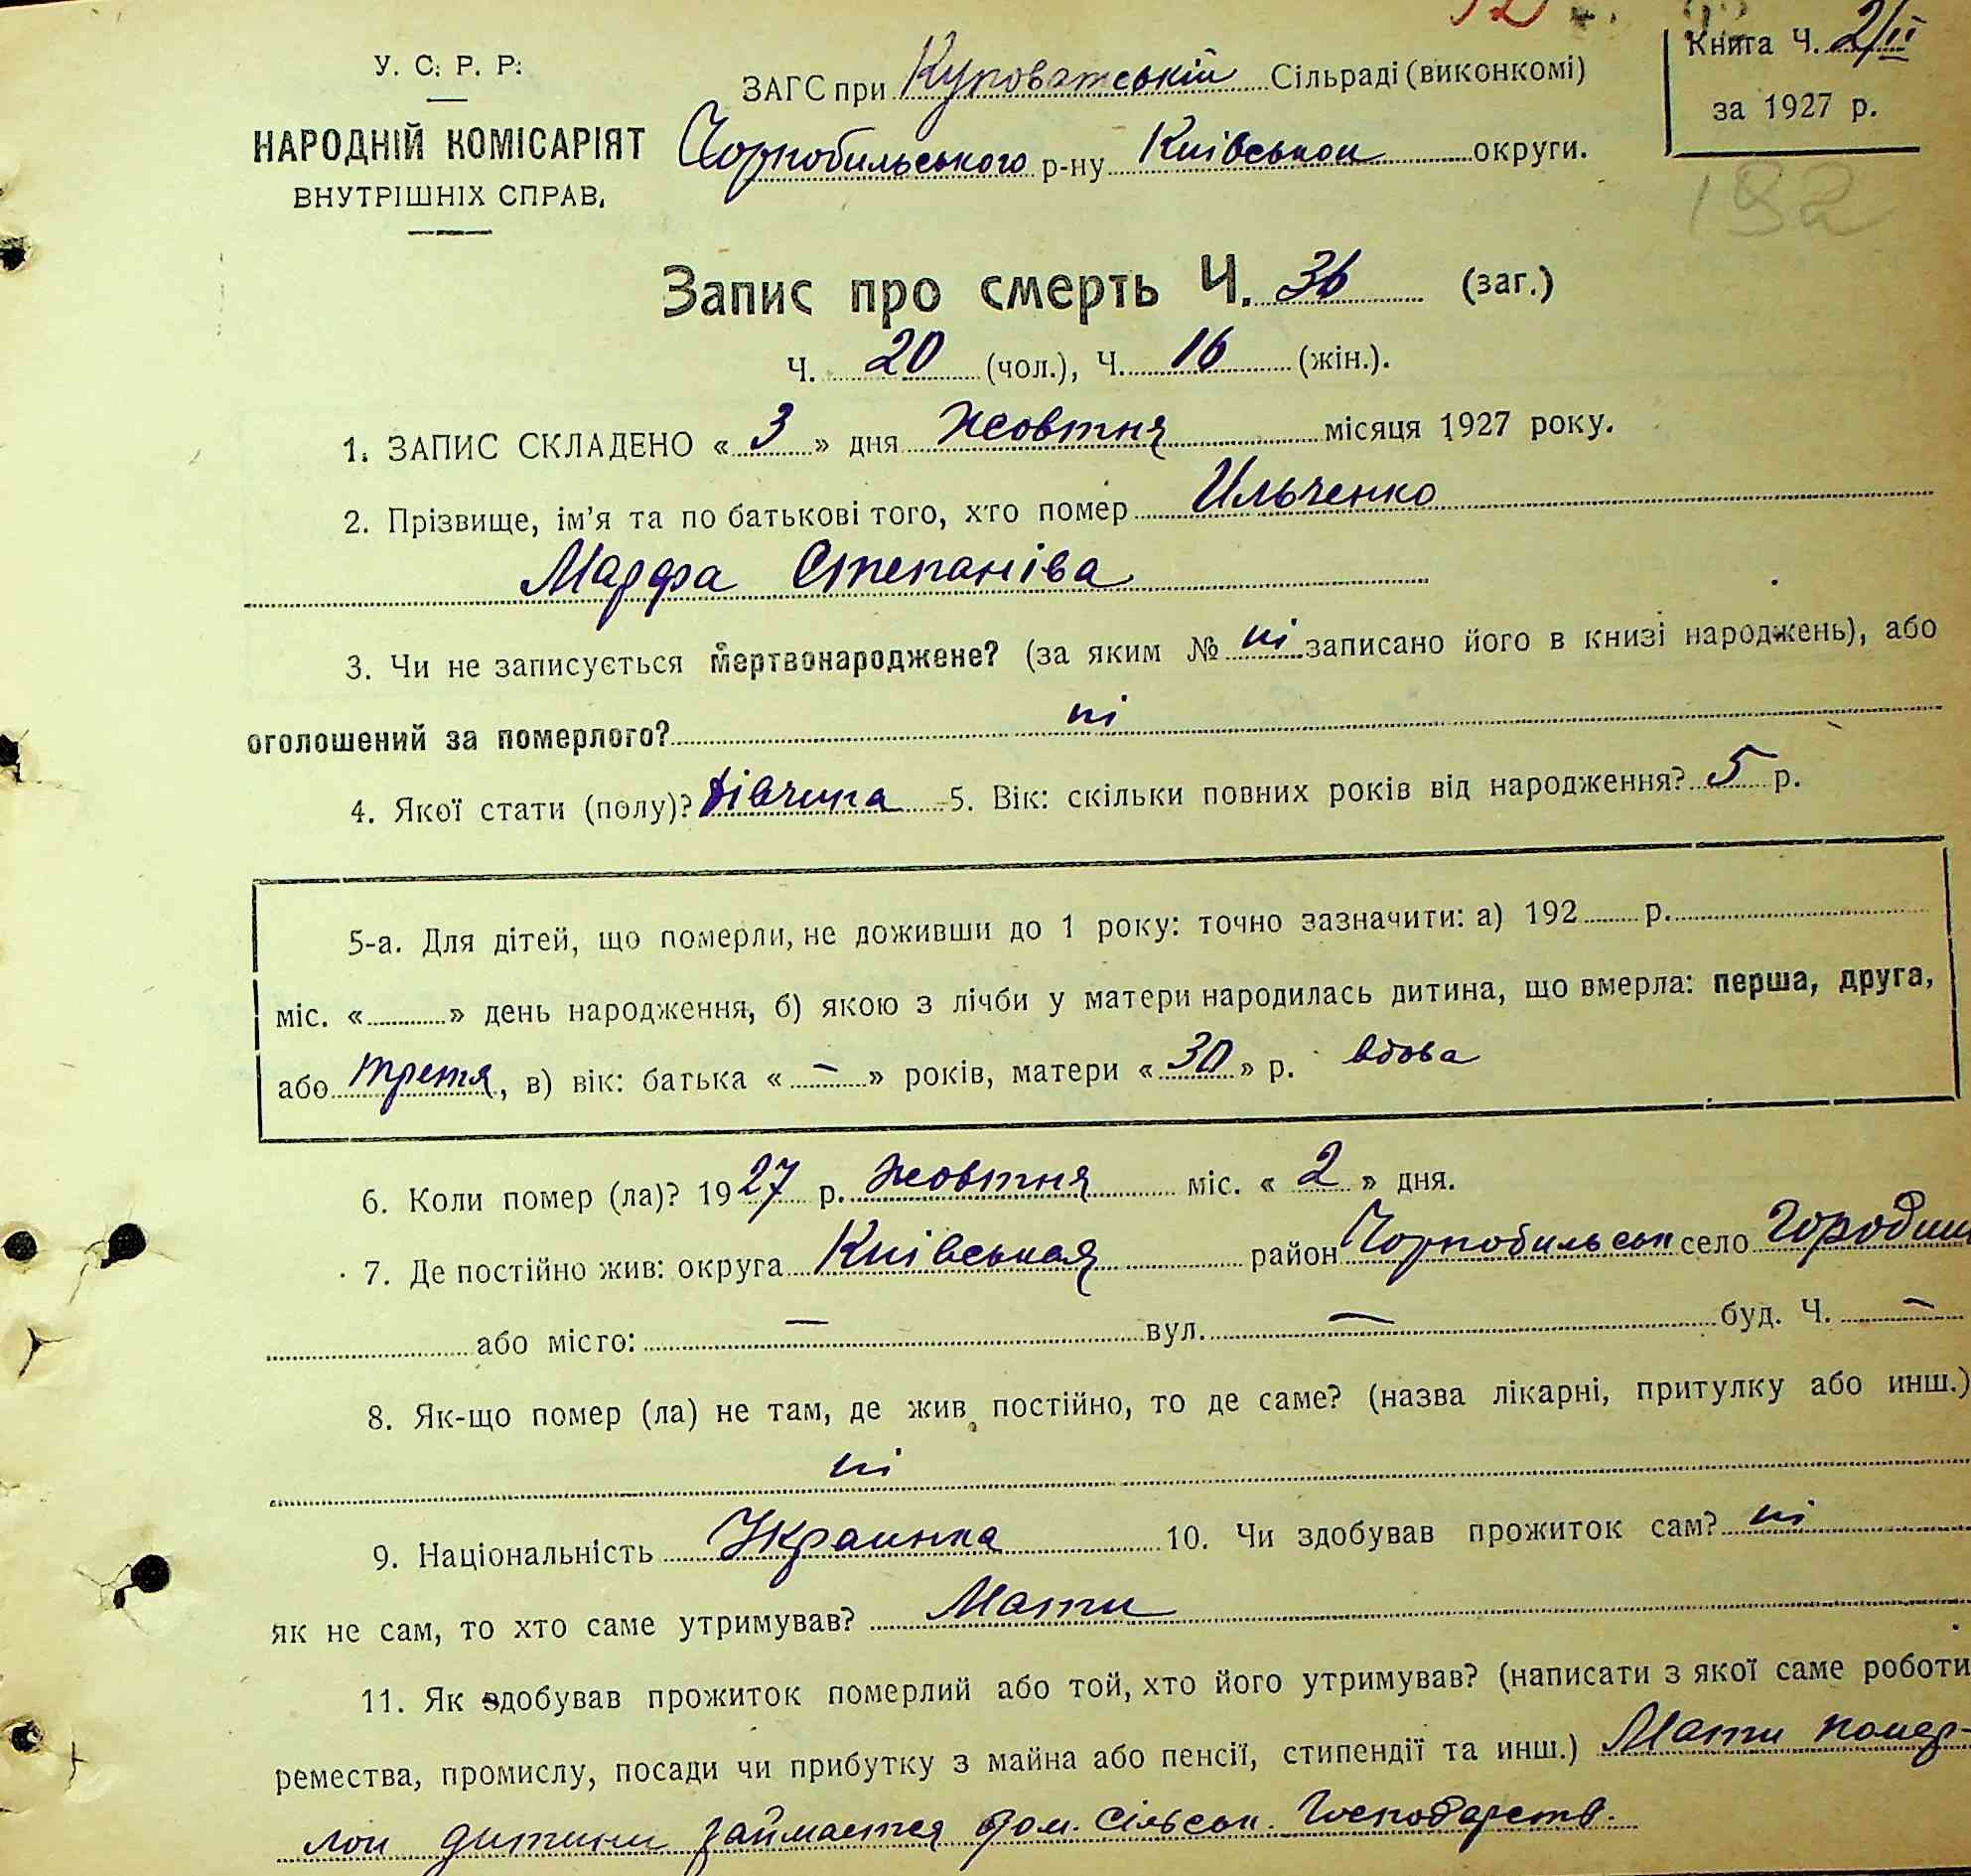 У. С. Р. Р.
НАРОДНІЙ КОМІСАРІЯТ
ВНУТРІШНІХ СПРАВ.
ЗАГС при Куповатській Сільраді (виконкомі)
Чорнобильського р-ну Київськои округи.
Книга Ч. 2/II
за 1927 р.
192
Запис про смерть Ч. 36 (заг.)
Ч. 20 (чол.), Ч. 16 (жін.).
1. ЗАПИС СКЛАДЕНО «3» дня жовтня місяця 1927 року.
2. Прізвище, ім'я та по батькові того, хто помер Ильченко
Марфа Степаніва
3. Чи не записується мертвонароджене? (за яким № ні записано його в книзі народжень), або
оголошений за померлого? ні
4. Якої стати (полу)? дівчина 5. Вік: скільки повних років від народження? 5 р.
5-а. Для дітей, що померли, не доживши до 1 року: точно зазначити: а) 192 р.
міс. « » день народження, б) якою з лічби у матери народилась дитина, що вмерла: перша, друга,
або третя, в) вік: батька « – » років, матери «30» р. вдова
6. Коли помер (ла)? 1927 р. жовтня міс. «2» дня.
7. Де постійно жив: округа Київськая район Чорнобильськ село Городищ
або місто: – вул. – буд. Ч. –
8. Як-що помер (ла) не там, де жив постійно, то де саме? (назва лікарні, притулку або инш.)
ні
9. Національність Украинка 10. Чи здобував прожиток сам? ні
як не сам, то хто саме утримував? Мати
11. Як здобував прожиток померлий або той, хто його утримував? (написати з якої саме роботи
ремества, промислу, посади чи прибутку з майна або пенсії, стипендії та инш.) Мати помер-
лои дитини займается дом. сільськ. господарств.